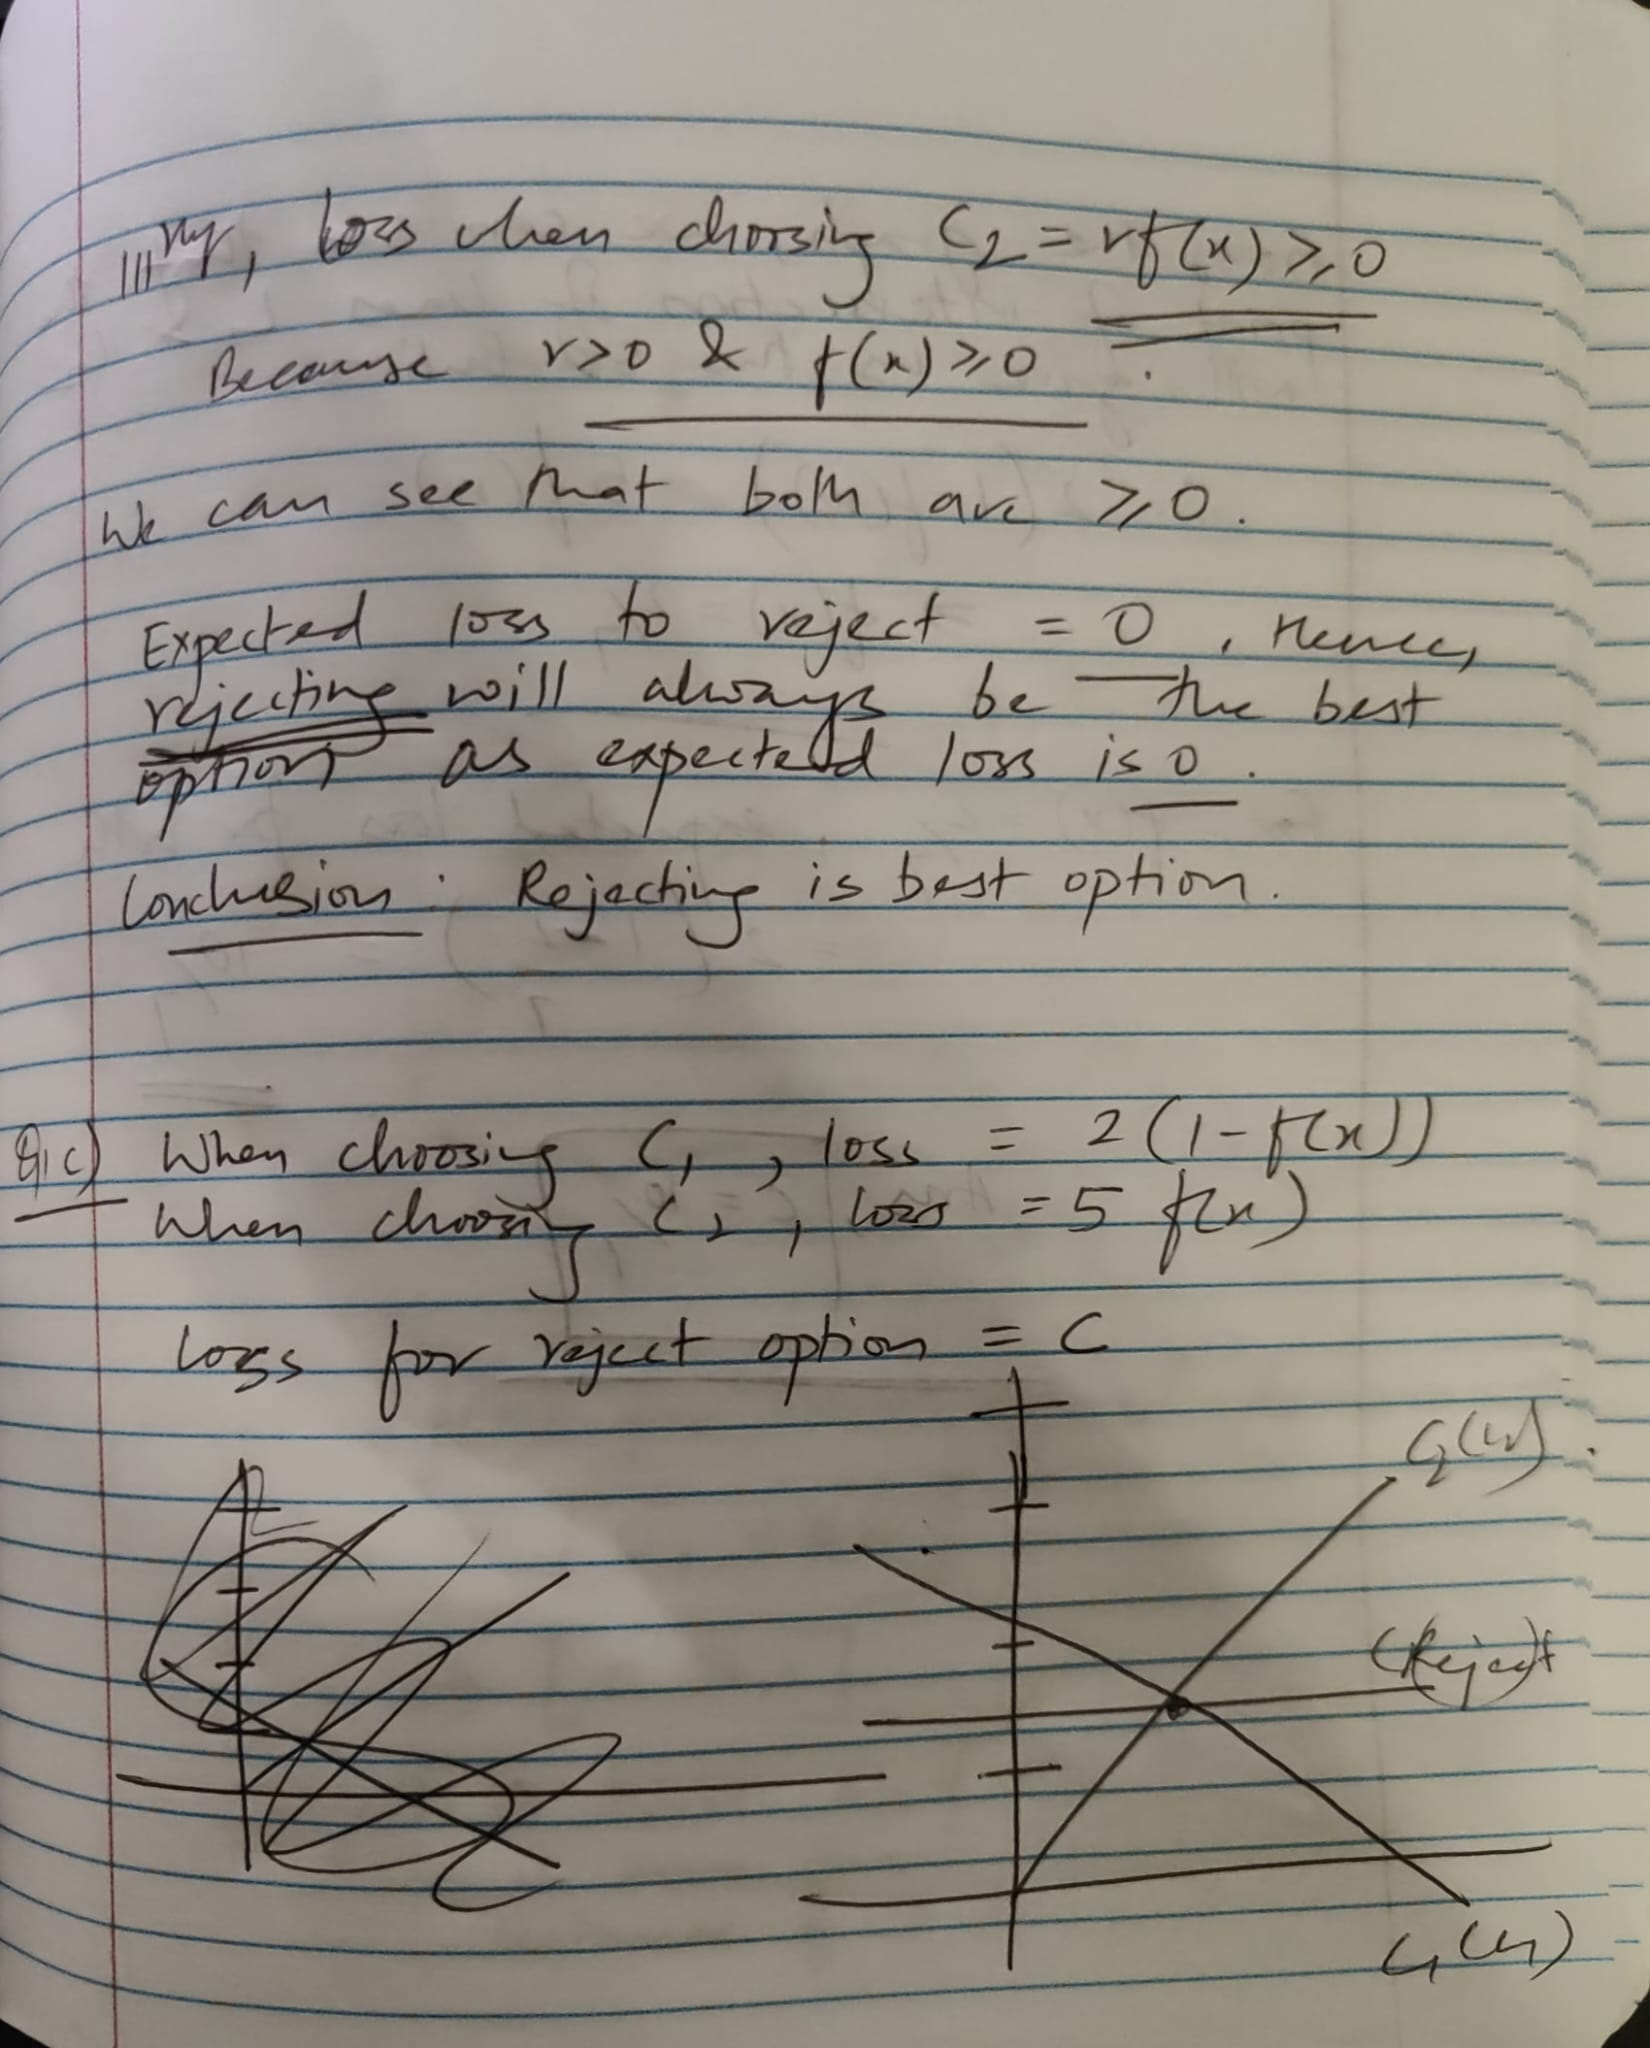 |||rly, loss when choosing C₂ = rf(x) ⩾ 0
Because r>0 & f(x) ⩾ 0
We can see that both are ⩾ 0.
Expected loss to reject = 0, Hence,
rejecting will always be the best
option as expected loss is 0.
Conclusion: Rejecting is best option.
Q1c) When choosing C₁, loss = 2(1-f(x))
When choosing C₂, loss = 5 f(x)
loss for reject option = C
(Reject